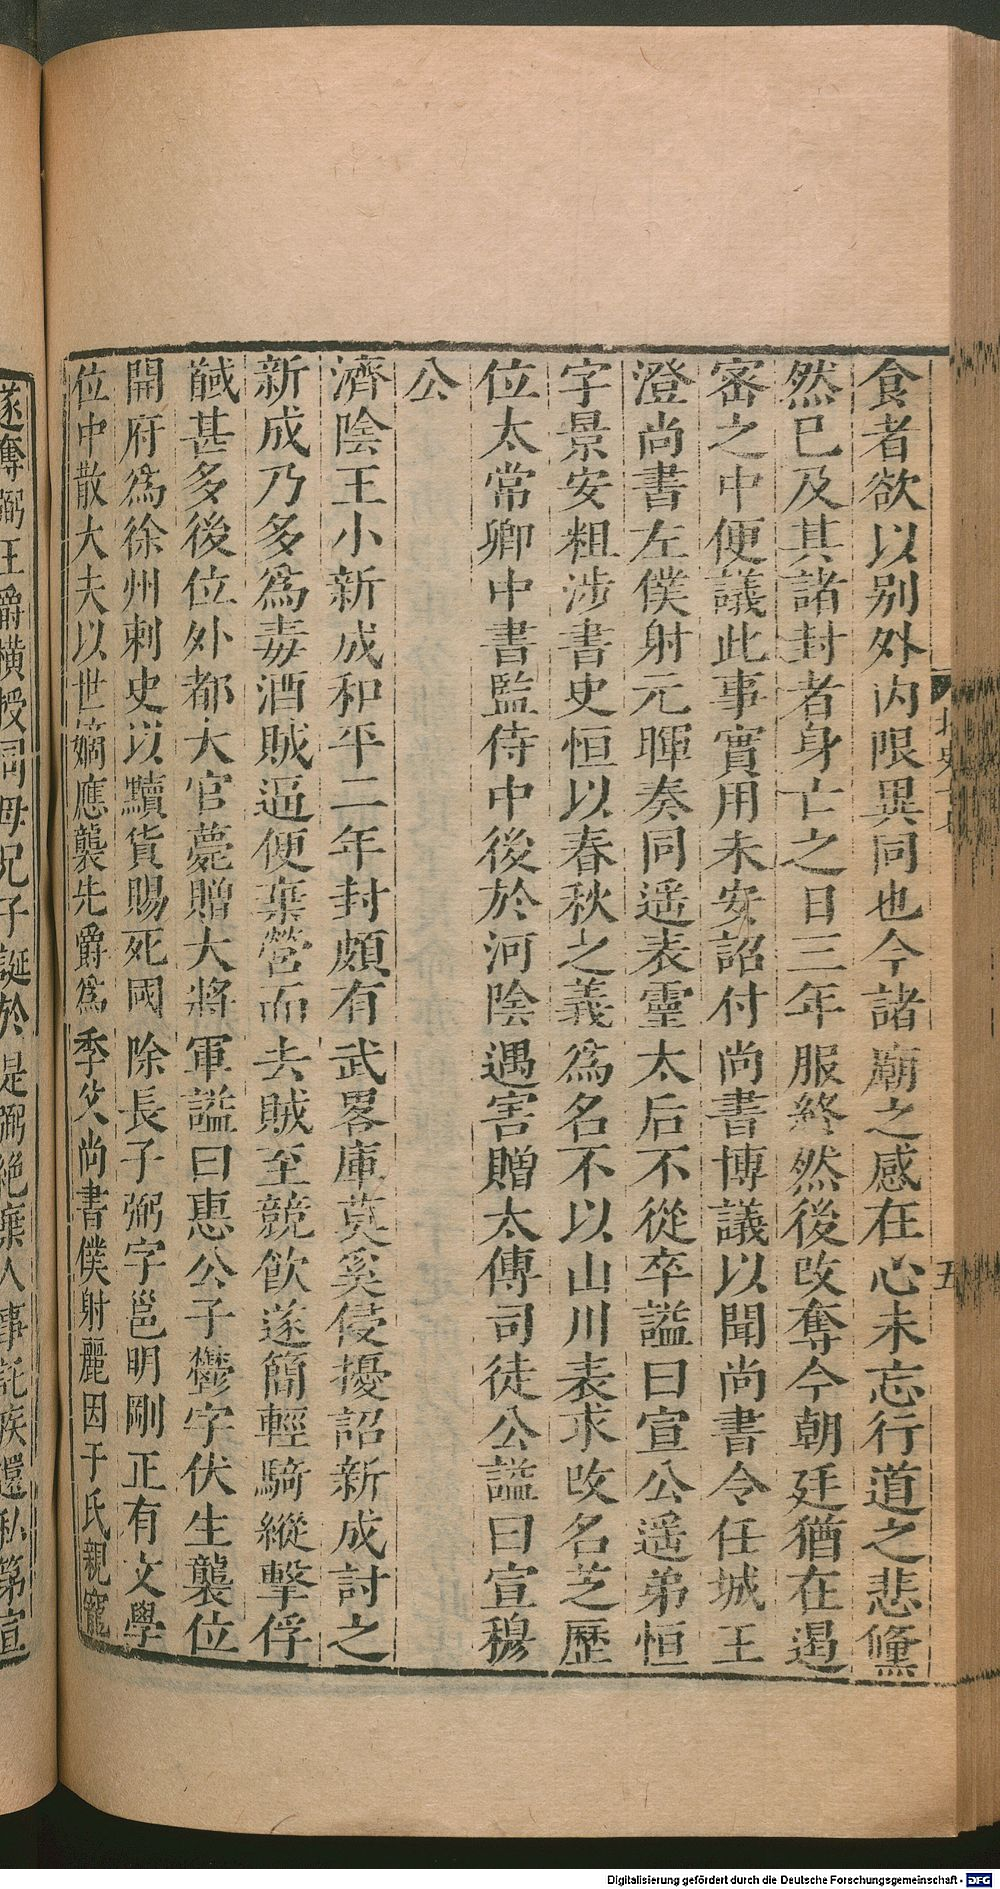 食者欲以别外内限異同也今諸廟之感在心未忘行道之悲儵
然已及其諸封者身亡之日三年服終然後改奪今朝廷猶在遏
密之中便議此事實用未安詔付尚書博議以聞尚書令任城王
澄尚書左僕射元暉奏同遥表靈太后不從卒謚曰宣公遥弟恒
字景安粗涉書史恒以春秋之義為名不以山川表求改名芝歷
位太常卿中書監侍中後於河陰遇害贈太傅司徒公謚曰宣穆
公
濟陰王小新成和平二年封頗有武畧庫莫奚侵擾詔新成討之
新成乃多為毒酒賊逼便棄營而去賊至競飲遂簡輕騎縱擊俘
馘甚多後位外都大官薨贈大將軍謚曰惠公子鬱字伏生襲位
開府為徐州刺史以黷貨賜死國除長子弼字邕明剛正有文學
位中散大夫以世嫡應襲先爵為季父尚書僕射麗因于氏親寵
遂奪弼王爵橫授同母兄子誕於是弼絶棄人事託疾還私第宣
北史十七
五
Digitalisierung gefördert durch die Deutsche Forschungsgemeinschaft - DFG